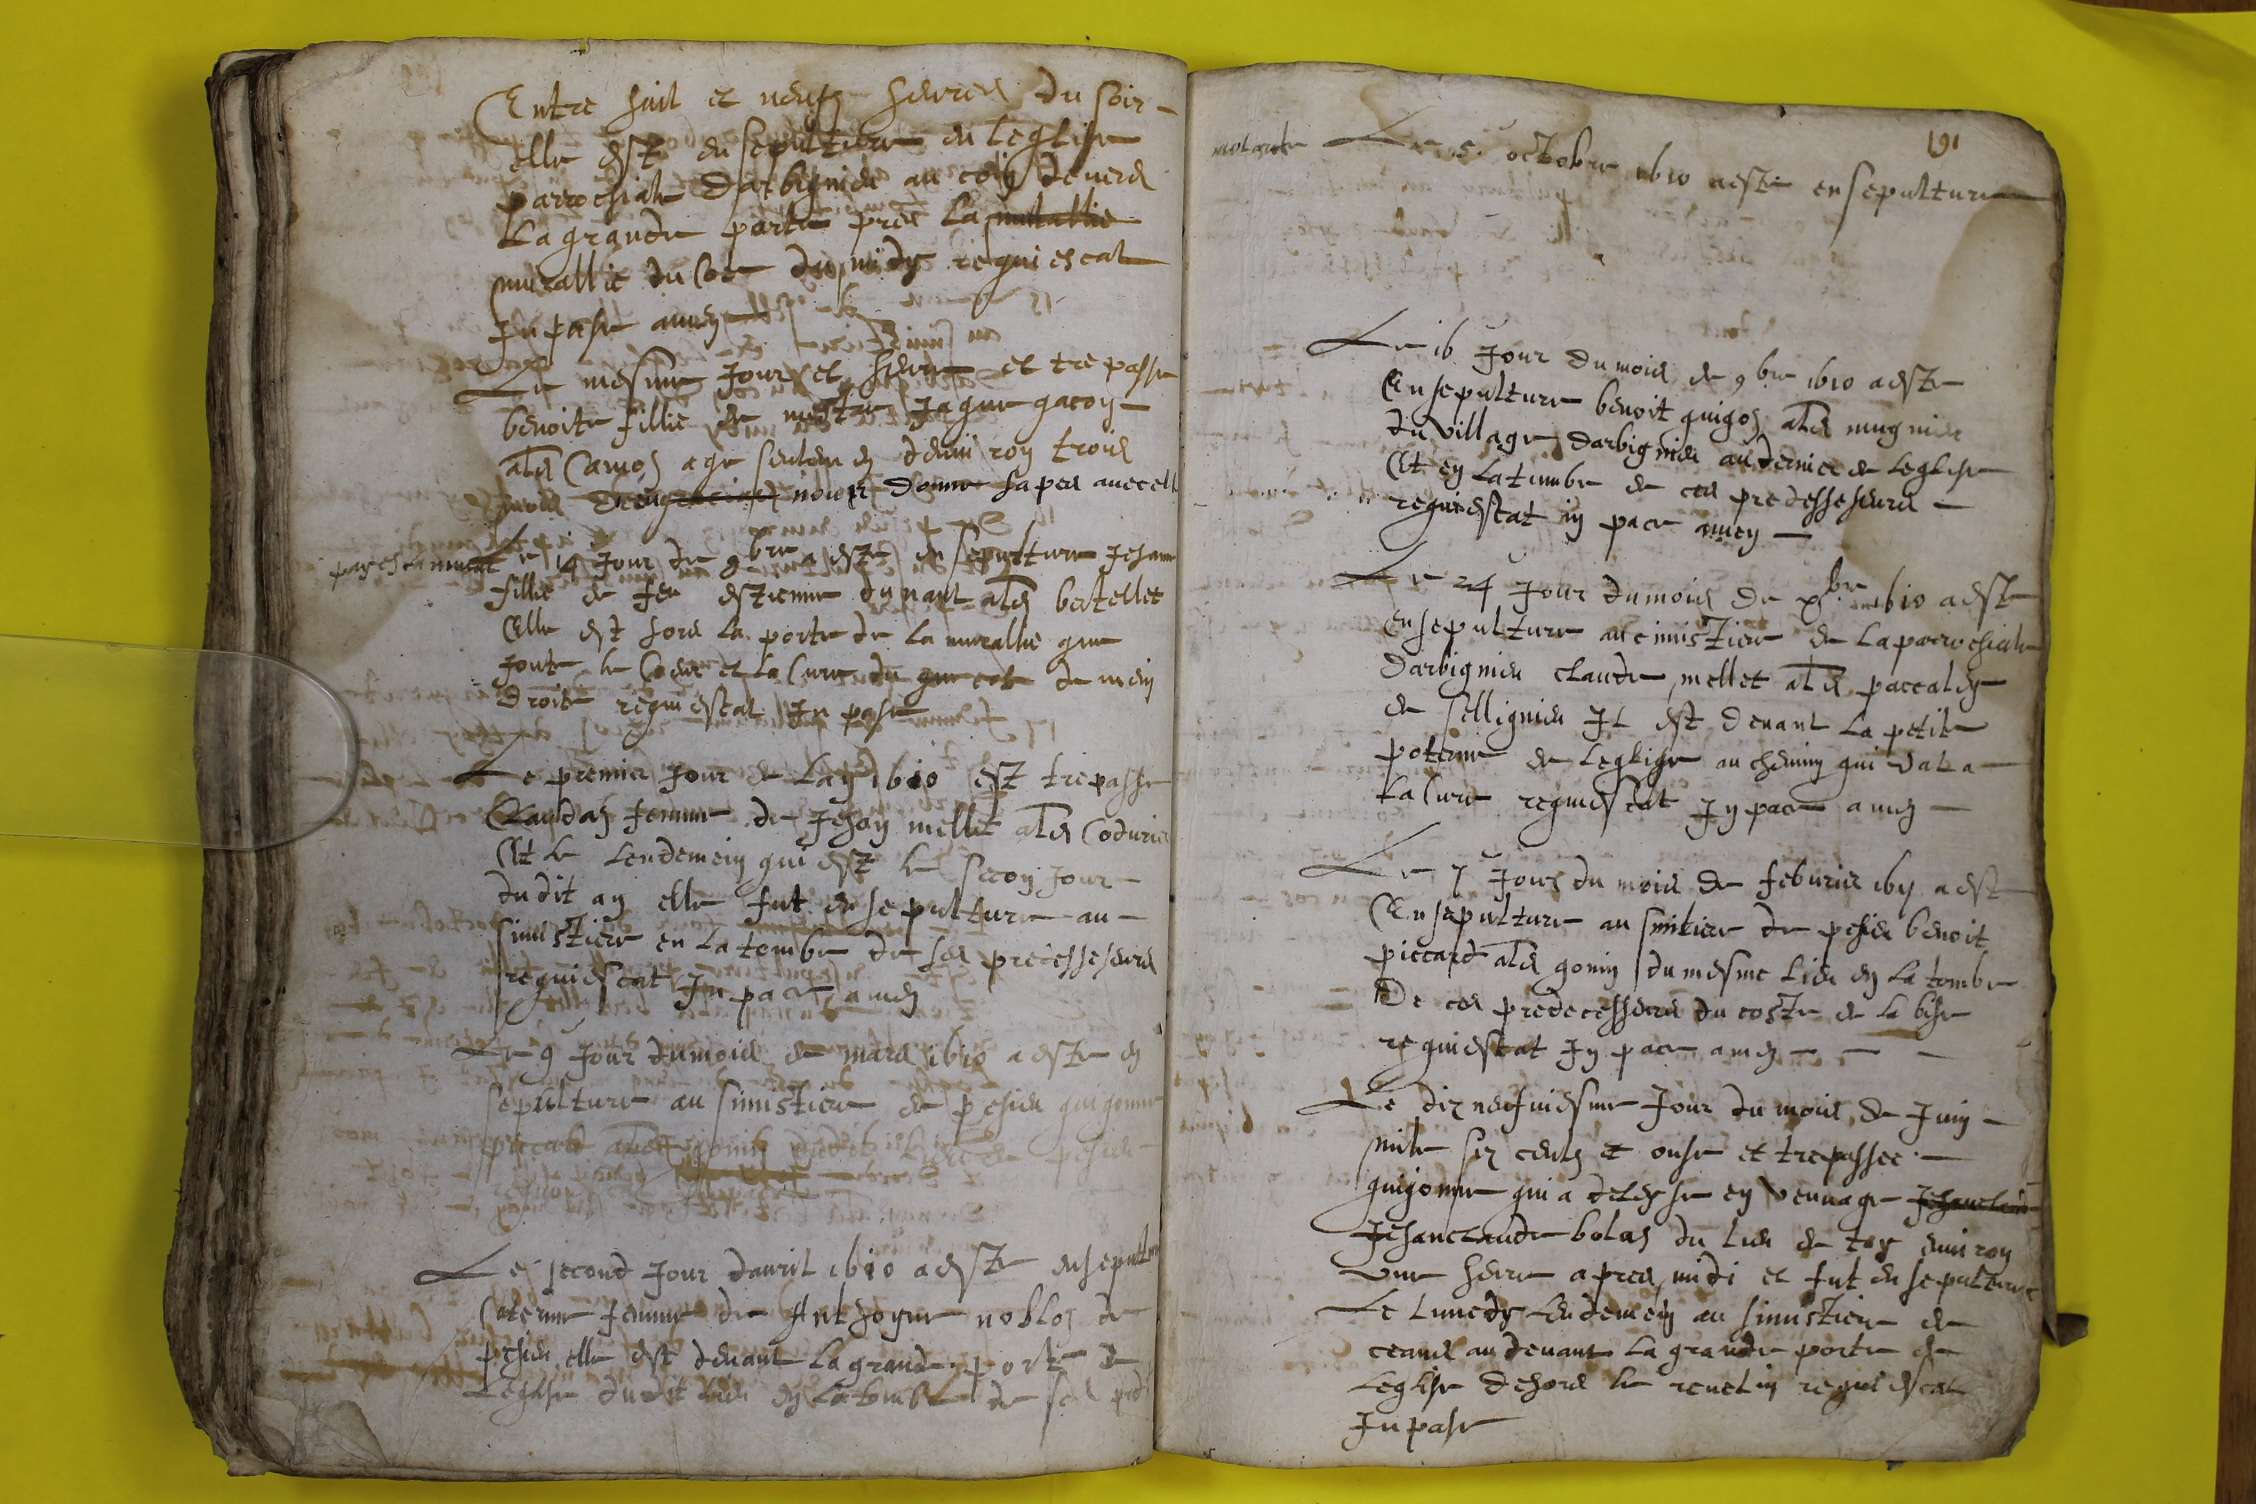 Entre huit et neufz heures du soir
elle est ensepulture en leglise
parrochiale darbignieu au coin devers
la grande porte pres la
murallie du Cote du midy requiescat
In pase amen
Le mesme Jour et heure et trepasse
benoite fillie de mestre Jaque gacon
als Camoz age seulemen environ trois
mois nourr donne sapes avec elle
Le 14 Jour de 9bre a este ensepulture Jehanne
fillie de feu estienne dunant als bertellet
Elle est hors la porte de la murallie que
Joute le Coeur et la Cure du que cote de mein
droite requiescat In pase
Le premier Jour de lan 1610 est trepasse
Claudaz femme de Jehan mellet als Coduries
Et le lendemein qui est le secon Jour
du dit an elle fut ensepulture au
simistiere en la tombe de ses predessesseurs
requiescat In pace amen
Le 9 Jour du mois de mars 1610 a este en
sepulture au simistiere de pesieu guigonne
piccard als gonin
Le second Jour davril 1610 a este ensepultur
Caterine femme de Anthoyne nobloz de
pesieu elle est devant la grande porte de
Leglise dudit lieu en la tombe de ses pred
191
Le 5 octobre 1610 a este ensepulture
Le 16 Jour du mois de 9bre 1610 a este
Ensepulture benoit guigoz als mugnier
du village darbignieu au dernier de leglise
Et en la tumbe de ces predessesseurs
requiescat in pace amen
Le 24 Jour du mois de xbre 1610 a este
Ensepulture au cimistiere de la parrochiale
darbignieu claude mellet als paccalen
de sellignieu Il est devant la petite
poterne de leglise au chemin qui va a
la Cure requiescat In pace amen
Le 7 Jour du mois de feburier 1611 a este
Ensepulture au smitiere de pesieu benoit
piccard als gonin du mesme lieu en la tombe
De ces predecesseurs du coste de la bise
requiescat In pace amen
Le dix neufviesme Jour du mois de Juin
mile six centz et onse et trepassee
guigonne qui a delesse en veuvage
Jehanclaude bolaz du lieu de toy environ
une heure apres midi et fut ensepulture
Le lunedy lendemein au simistiere de
ceans au devant la grande porte de
Leglise dehors le revelin requiescat
In pase